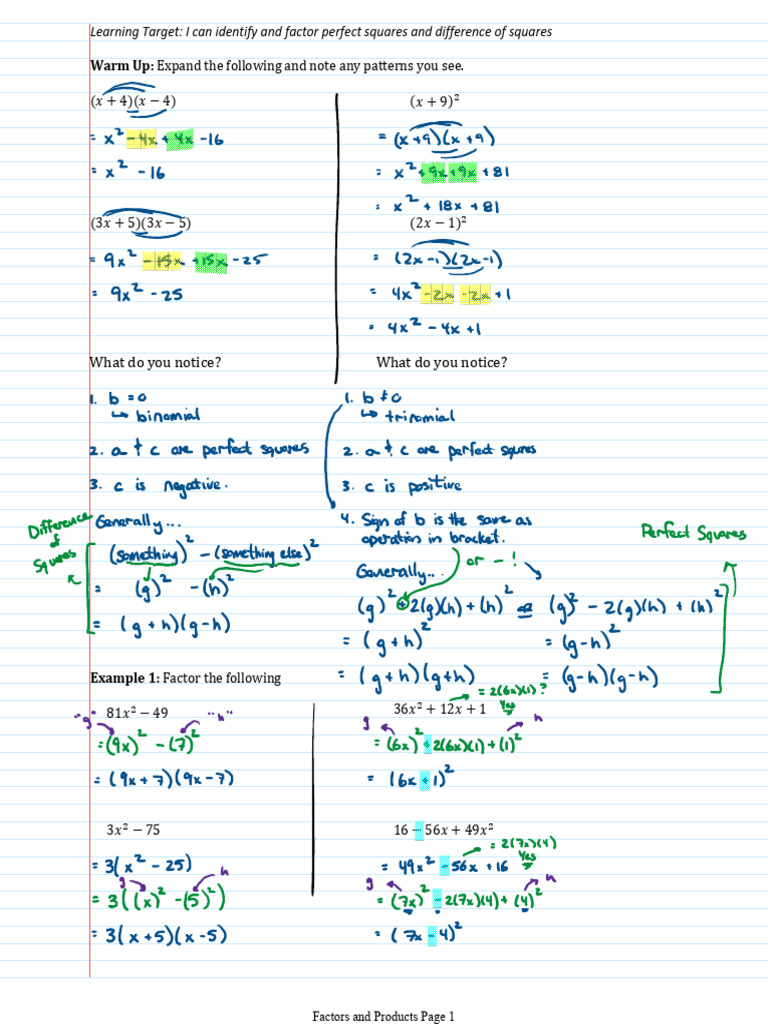 Learning Target: I can identify and factor perfect squares and difference of squares
Warm Up: Expand the following and note any patterns you see.
(x + 4)(x − 4)
= x² - 4x + 4x - 16
= x² - 16
(3x + 5)(3x − 5)
= 9x² - 15x + 15x - 25
= 9x² - 25
(x + 9)²
= (x + 9)(x + 9)
= x² + 9x + 9x + 81
= x² + 18x + 81
(2x − 1)²
= (2x - 1)(2x - 1)
= 4x² - 2x - 2x + 1
= 4x² - 4x + 1
What do you notice?
1. b = 0
↳ binomial
2. a & c are perfect squares
3. c is negative.
Generally...
Difference
of
Squares
(something)² - (something else)²
= (g)² - (h)²
= (g + h)(g - h)
What do you notice?
1. b ≠ 0
↳ trinomial
2. a & c are perfect squares
3. c is positive
4. Sign of b is the same as
operation in bracket.
Perfect Squares
or - !
Generally...
(g)² + 2(g)(h) + (h)² or (g)² - 2(g)(h) + (h)²
= (g + h)² = (g - h)²
= (g + h)(g + h) = (g - h)(g - h)
Example 1: Factor the following
81x² − 49
"g" "h"
= (9x)² - (7)²
= (9x + 7)(9x - 7)
3x² − 75
= 3(x² - 25)
g h
= 3((x)² - (5)²)
= 3(x + 5)(x - 5)
= 2(6x)(1)?
Yes
36x² + 12x + 1
g h
= (6x)² + 2(6x)(1) + (1)²
= (6x + 1)²
16 − 56x + 49x²
= 2(7x)(4)
Yes
= 49x² - 56x + 16
g h
= (7x)² - 2(7x)(4) + (4)²
= (7x - 4)²
Factors and Products Page 1